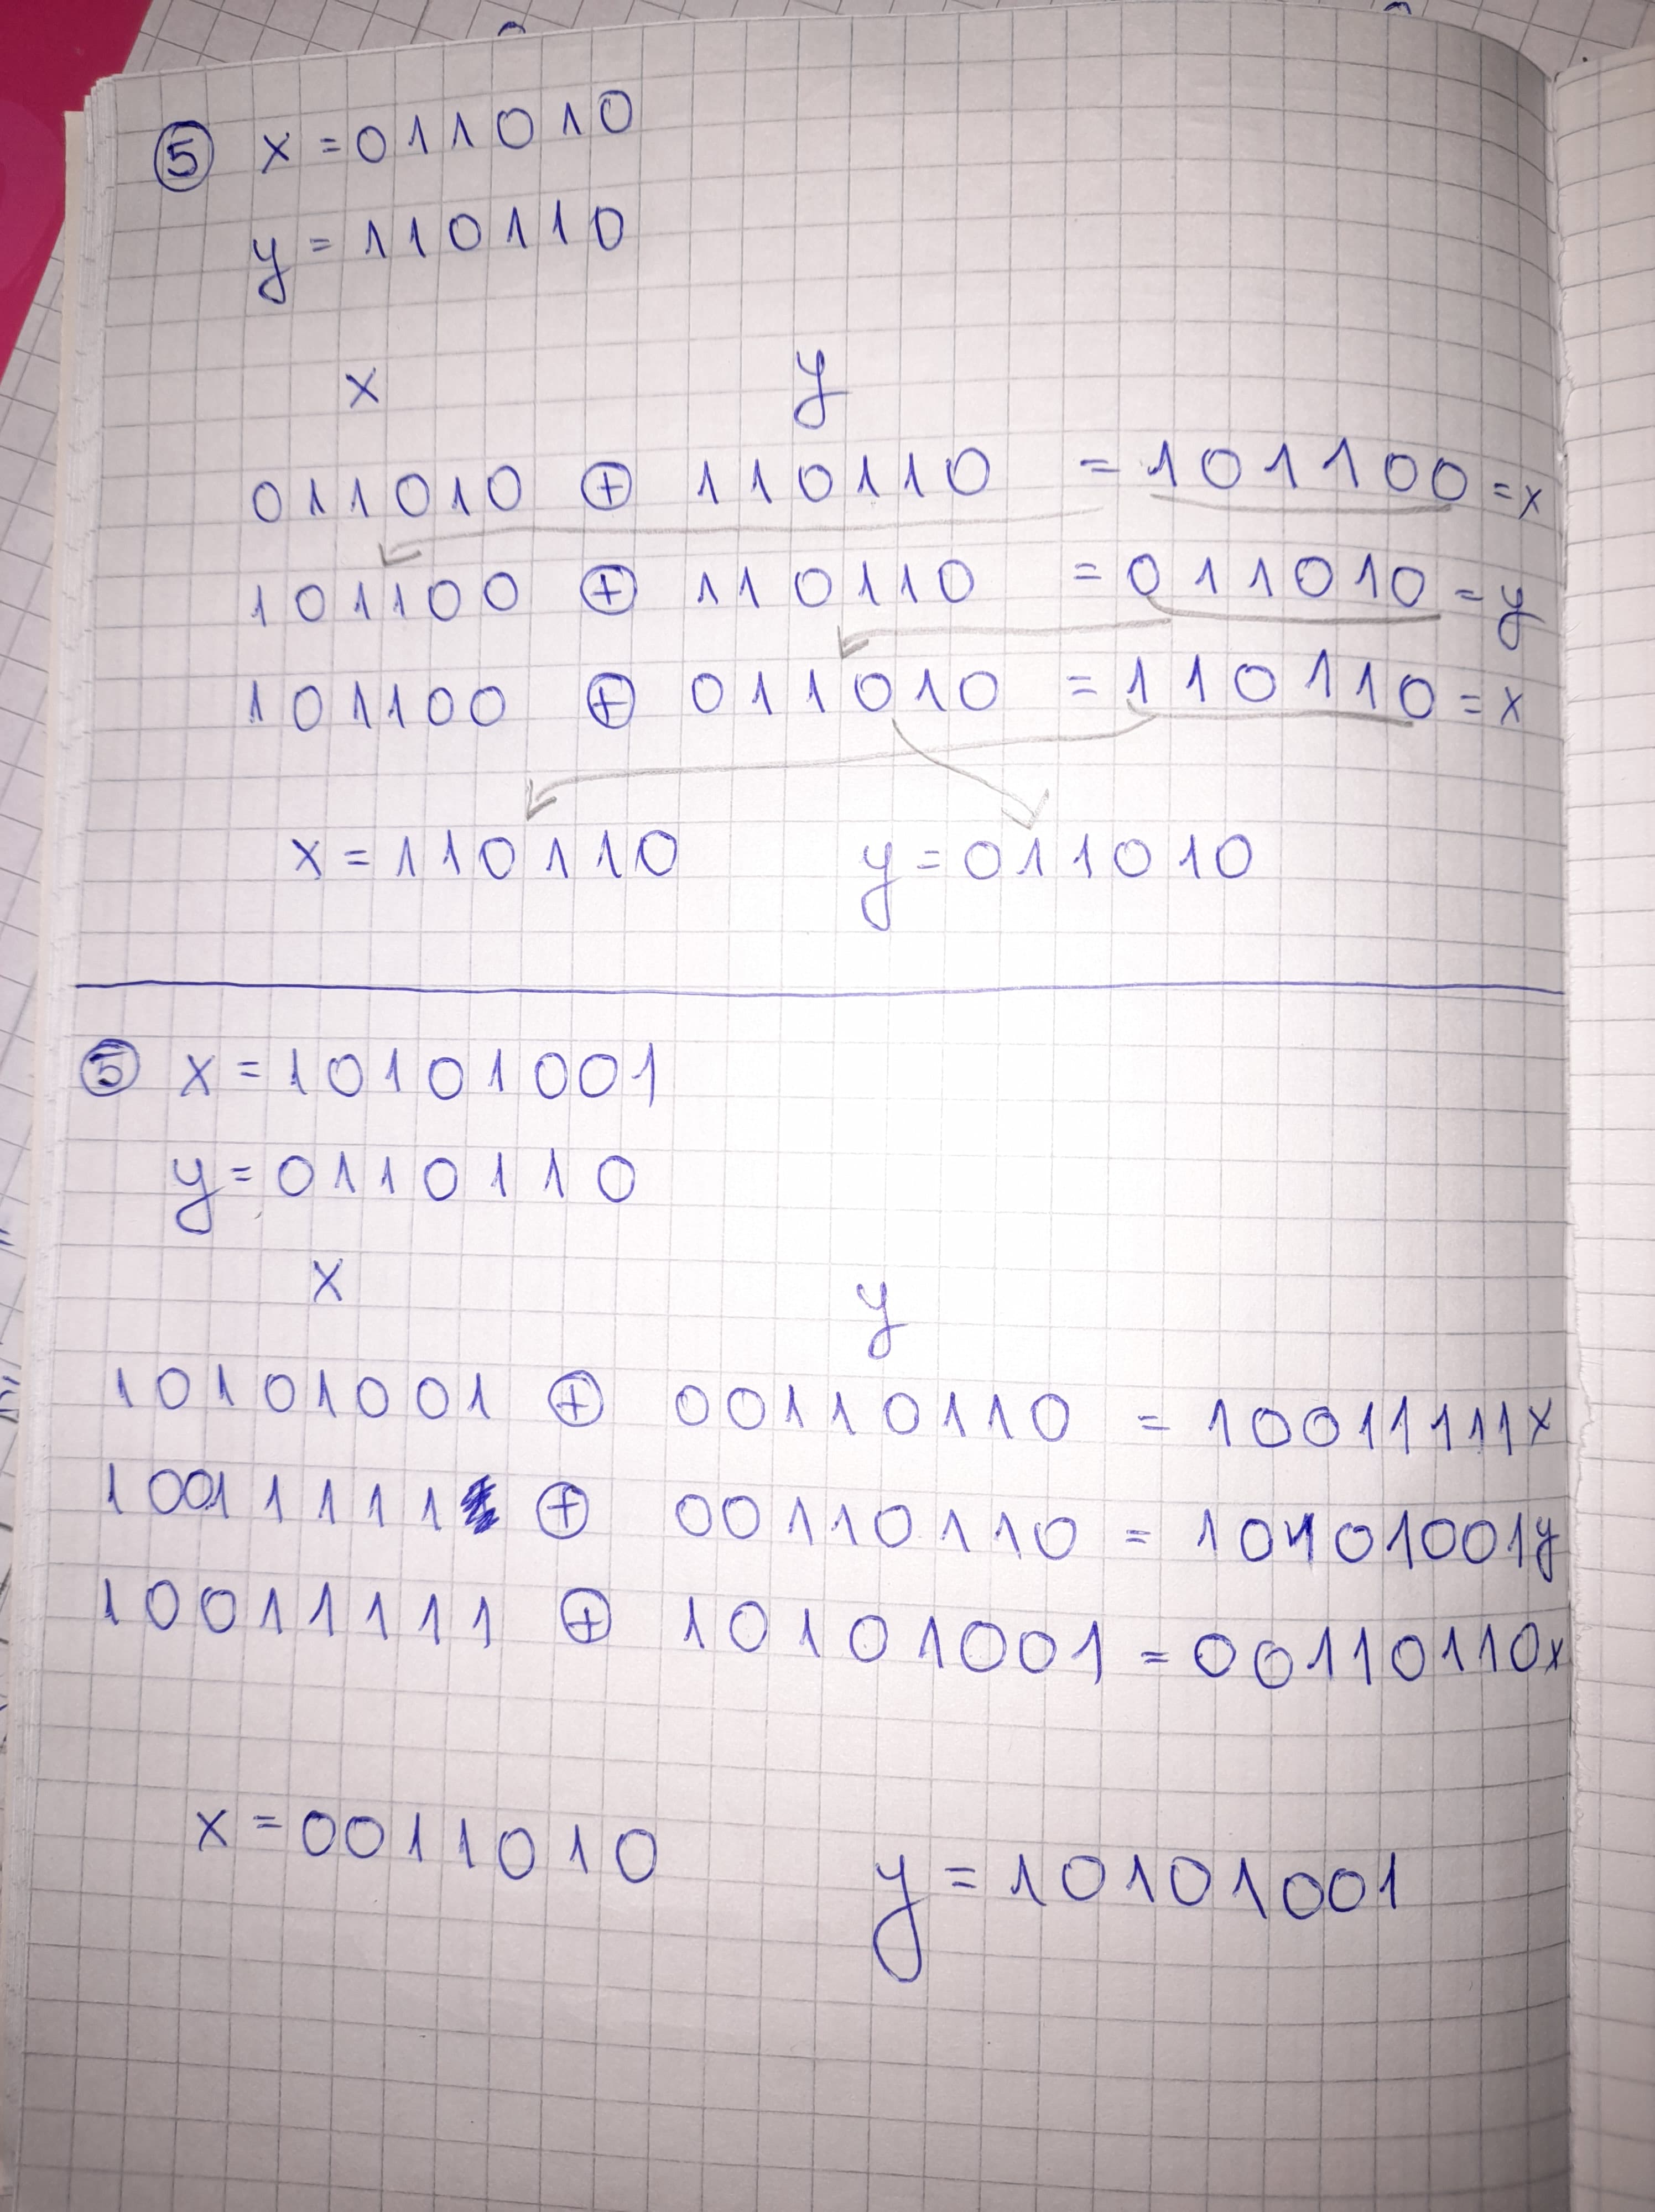 ⑤ x = 011010
y = 110110
x y
011010 ⊕ 110110 = 101100 = x
101100 ⊕ 110110 = 011010 = y
101100 ⊕ 011010 = 110110 = x
x = 110110 y = 011010
⑤ x = 10101001
y = 0110110
x y
10101001 ⊕ 00110110 = 10011111 x
10011111 ⊕ 00110110 = 10101001 y
10011111 ⊕ 10101001 = 00110110 x
x = 0011010 y = 10101001